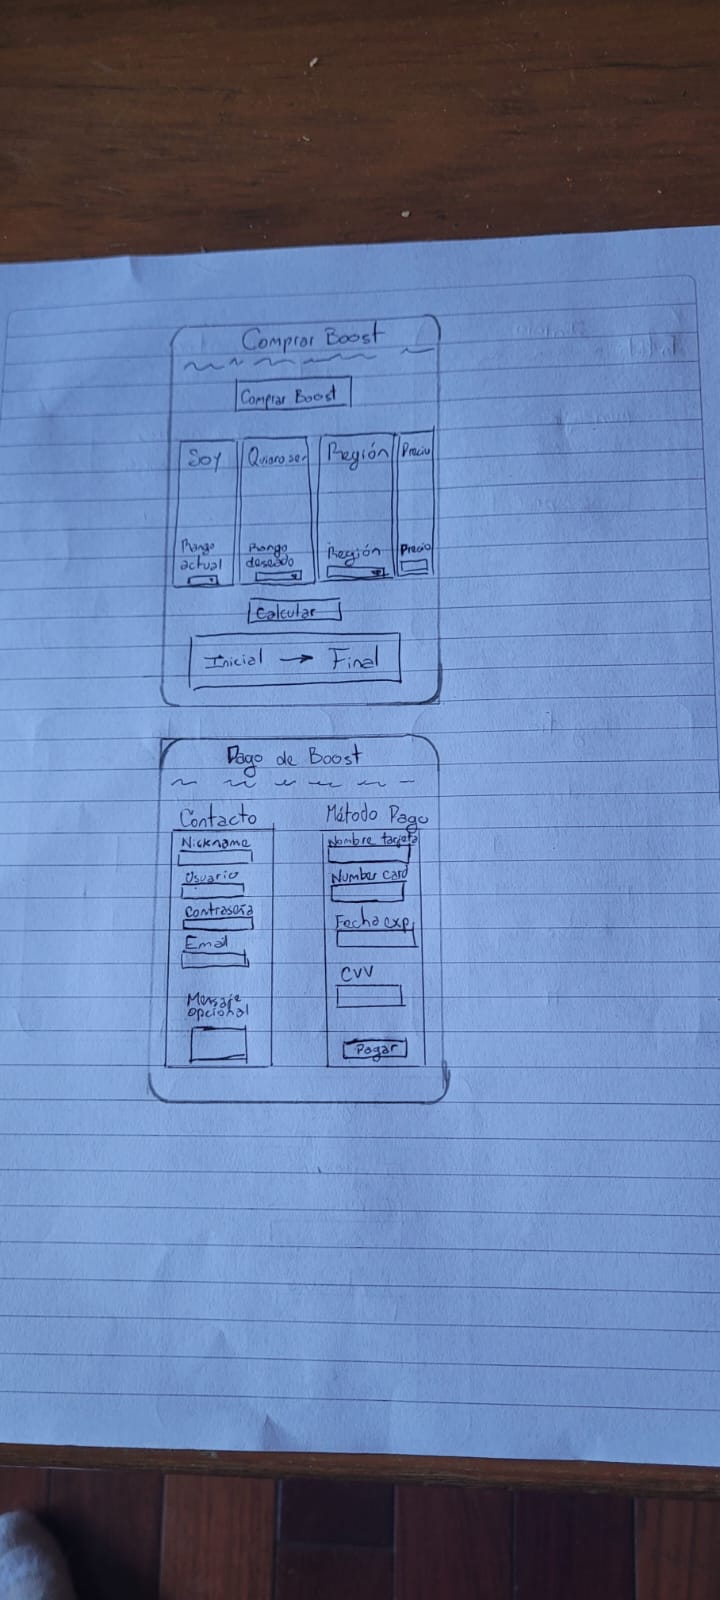 Comprar Boost
Comprar Boost
Soy
Quiero ser
Región
Precio
Rango
actual
Rango
deseado
Región
Precio
Calcular
Inicial → Final
Pago de Boost
Contacto
Nickname
Usuario
Contraseña
Email
Mensaje
opcional
Método Pago
Nombre tarjeta
Number card
Fecha exp.
CVV
Pagar